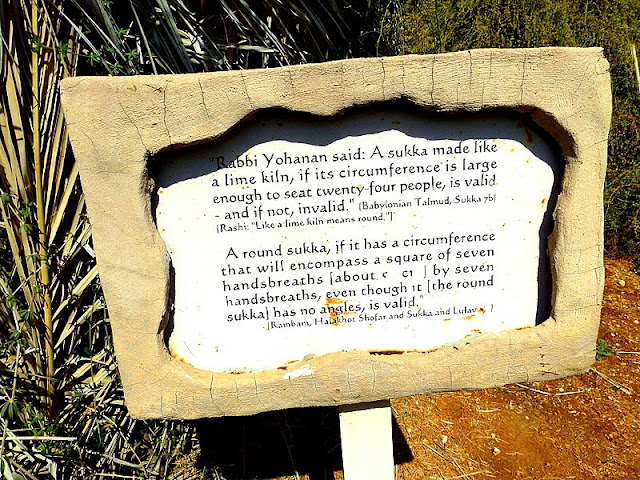 "Rabbi Yohanan said: A sukka made like
a lime kiln, if its circumference is large
enough to seat twenty-four people, is valid
- and if not, invalid." (Babylonian Talmud, Sukka 7b)
[Rashi: "Like a lime kiln means round."]'
A round sukka, if it has a circumference
that will encompass a square of seven
handsbreaths [about ] by seven
handsbreaths, even though it [the round
sukka] has no angles, is valid."
[Rambam, Halakhot Shofar and Sukka and Lulav ]